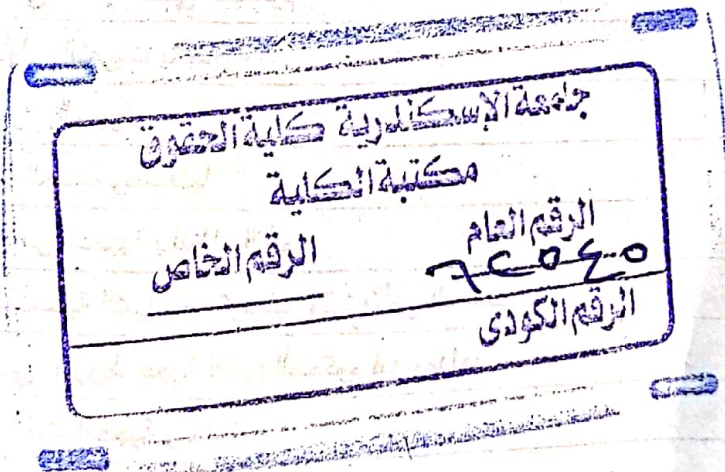 جامعة الإسكندرية كلية الحقوق
مكتبة الكلية
الرقم العام
الرقم الخاص
٦٢٥٤٥
الرقم الكودى